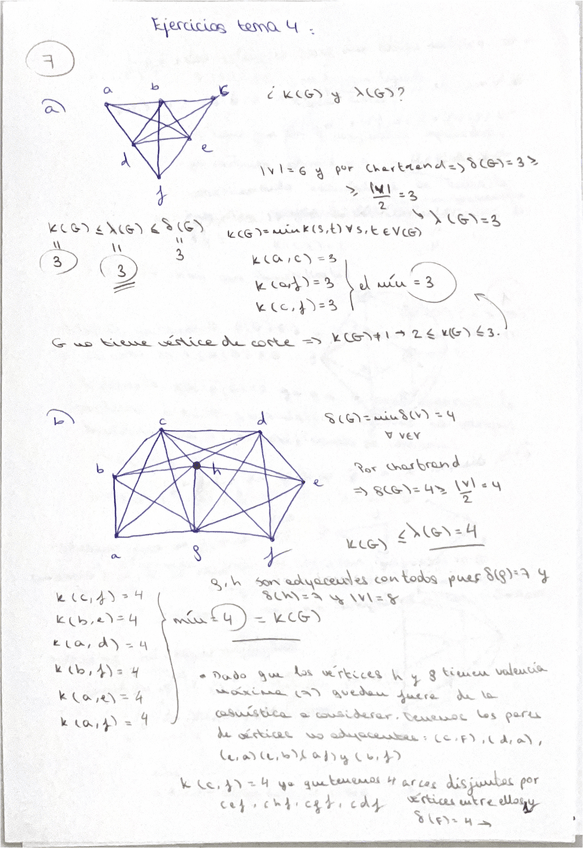 Ejercicios tema 4 :
7
a)
a b c
d e
f
¿ K(G) y λ(G) ?
|V| = 6 y por Chartrand => δ(G) = 3 ≥
≥ |V|/2 = 3
↳ λ(G) = 3
K(G) ≤ λ(G) ≤ δ(G)
= = =
3 3 3
K(G) = min K(s,t) ∀ s,t ∈ V(G)
K(a,c) = 3
K(a,f) = 3
K(c,f) = 3
el mín = 3
G no tiene vértice de corte => K(G) ≠ 1 → 2 ≤ K(G) ≤ 3.
b)
c d
b h e
a g f
δ(G) = min δ(v) = 4
∀ v∈V
Por Chartrand
=> δ(G) = 4 ≥ |V|/2 = 4
K(G) ≤ λ(G) = 4
g, h son adyacentes con todos pues δ(g) = 7 y
δ(h) = 7 y |V| = 8
K(c,f) = 4
K(b,e) = 4
K(a,d) = 4
K(b,f) = 4
K(a,e) = 4
K(a,f) = 4
mín = 4 = K(G)
• Dado que los vértices h y g tienen valencia
máxima (7) quedan fuera de la
casuística a considerar. Tenemos los pares
de vértices no adyacentes : (c,f), (d,a),
(e,a) (e,b) (a,f) y (b,f)
K(c,f) = 4 ya que tenemos 4 arcos disjuntos por
cef, chf, cgf, cdf vértices entre ellos y
δ(f) = 4 →